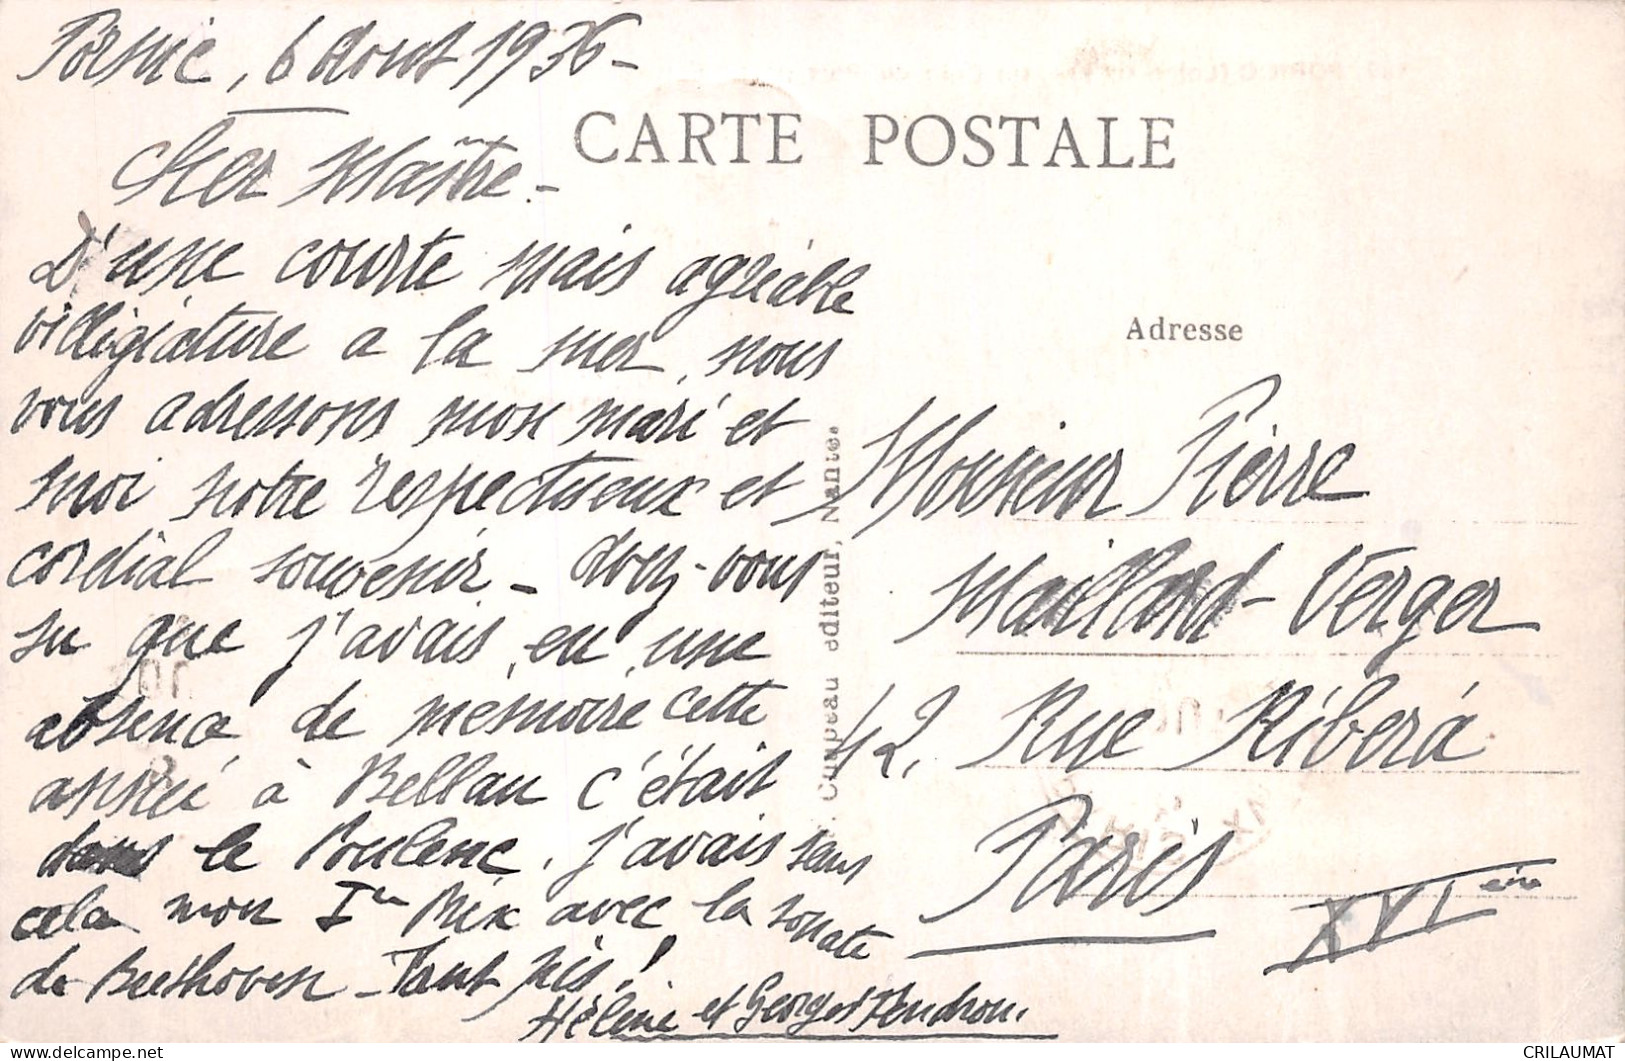 Pornic, 6 Aout 1936 -
CARTE POSTALE
Cher Maître -
D'une courte mais agréable
villégiature a la mer, nous
vous adressons mon mari et
moi notre respectueux et
cordial souvenir - Avez-vous
su que j'avais eu une
absence de mémoire cette
année à Bellan c'était
dans le Poulenc, j'avais sans
cela mon Ier Prix avec la sonate
de Beethoven - Tant pis!
Hélène et Georges Tendron.
Adresse
Monsieur Pierre
Maillard-Verger
42, Rue Ribéra
Paris
XVIème
éditeur, Nantes
CRILAUMAT